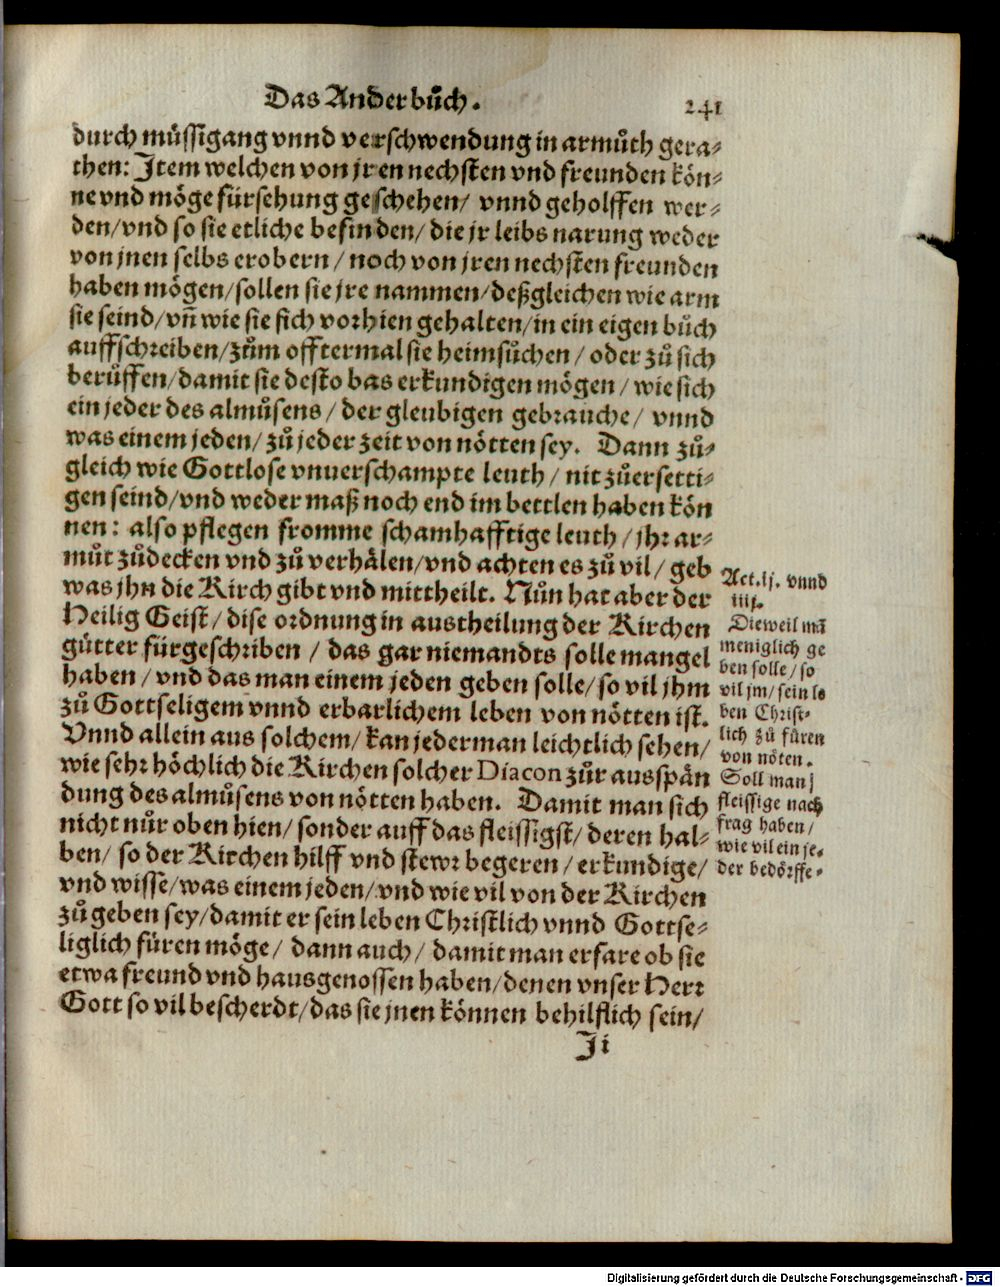 Das Ander bůch. 241
durch müssigang vnnd verschwendung in armůth gera-
then: Item welchen von jren nechsten vnd freunden kön-
ne vnd möge fürsehung geschehen/ vnnd geholffen wer-
den/vnd so sie etliche befinden/ die jr leibs narung weder
von jnen selbs erobern/ noch von jren nechsten freunden
haben mögen/sollen sie jre nammen/deßgleichen wie arm
sie seind/vñ wie sie sich vorhien gehalten/in ein eigen bůch
auffschreiben/zům offtermal sie heimsůchen/ oder zů sich
berůffen/damit sie desto bas erkundigen mögen/ wie sich
ein jeder des almůsens/ der gleubigen gebrauche/ vnnd
was einem jeden/ zů jeder zeit von nötten sey. Dann zů-
gleich wie Gottlose vnuerschampte leuth/ nit zůersetti-
gen seind/vnd weder maß noch end im bettlen haben kön
nen: also pflegen fromme schamhafftige leuth/ jhr ar-
můt zůdecken vnd zů verhälen/vnd achten es zů vil/ geb
was jhn die Kirch gibt vnd mittheilt. Nůn hat aber der
Heilig Geist/ dise ordnung in austheilung der Kirchen
gütter fürgeschriben/ das gar niemandts solle mangel
haben/ vnd das man einem jeden geben solle/ so vil jhm
zů Gottseligem vnnd erbarlichem leben von nötten ist.
Vnnd allein aus solchem/ kan jederman leichtlich sehen/
wie sehr höchlich die Kirchen solcher Diacon zůr ausspän
dung des almůsens von nötten haben. Damit man sich
nicht nůr oben hien/ sonder auff das fleissigst/ deren hal-
ben/ so der Kirchen hilff vnd stewr begeren/ erkundige/
vnd wisse/was einem jeden/ vnd wie vil von der Kirchen
zů geben sey/damit er sein leben Christlich vnnd Gottse-
liglich füren möge/ dann auch/ damit man erfare ob sie
etwa freund vnd hausgenossen haben/denen vnser Herr
Gott so vil bescherdt/das sie jnen können behilflich sein/
Ji
Act.ij. vnnd
iiij.
Dieweil mā
meniglich ge
ben solle/ so
vil jm/ sein le
ben Christ-
lich zů füren
von nöten.
Soll man
fleissige nach
frag haben/
wie vil ein je-
der bedörffe.
Digitalisierung gefördert durch die Deutsche Forschungsgemeinschaft - DFG